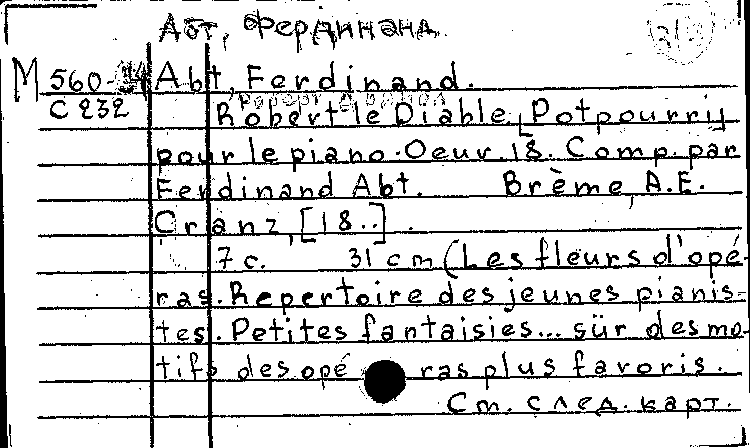 Абт, Фердинанд
M 560- Abt, Ferdinand.
C 232
Robert le Diable, [Potpourri]
pour le piano. Oeur. 18. Comp. par
Ferdinand Abt. Brème, A.E.
Cranz, [18..].
7 с. 31 cm (Les fleurs d'opé-
ras. Repertoire des jeunes pianis-
tes. Petites fantaisies... sür des mo-
tifs des opé ras plus favoris.
См. след. карт.